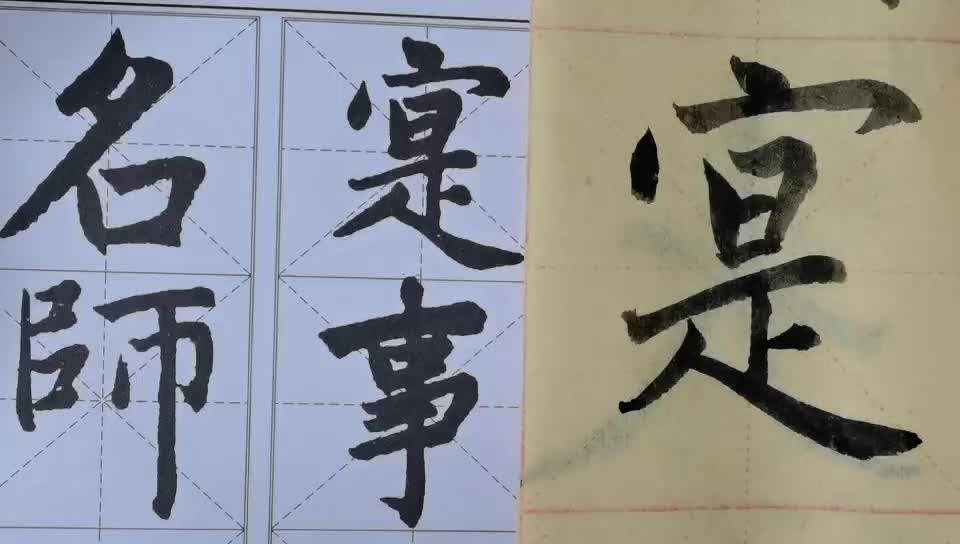 寔事
名師
寔